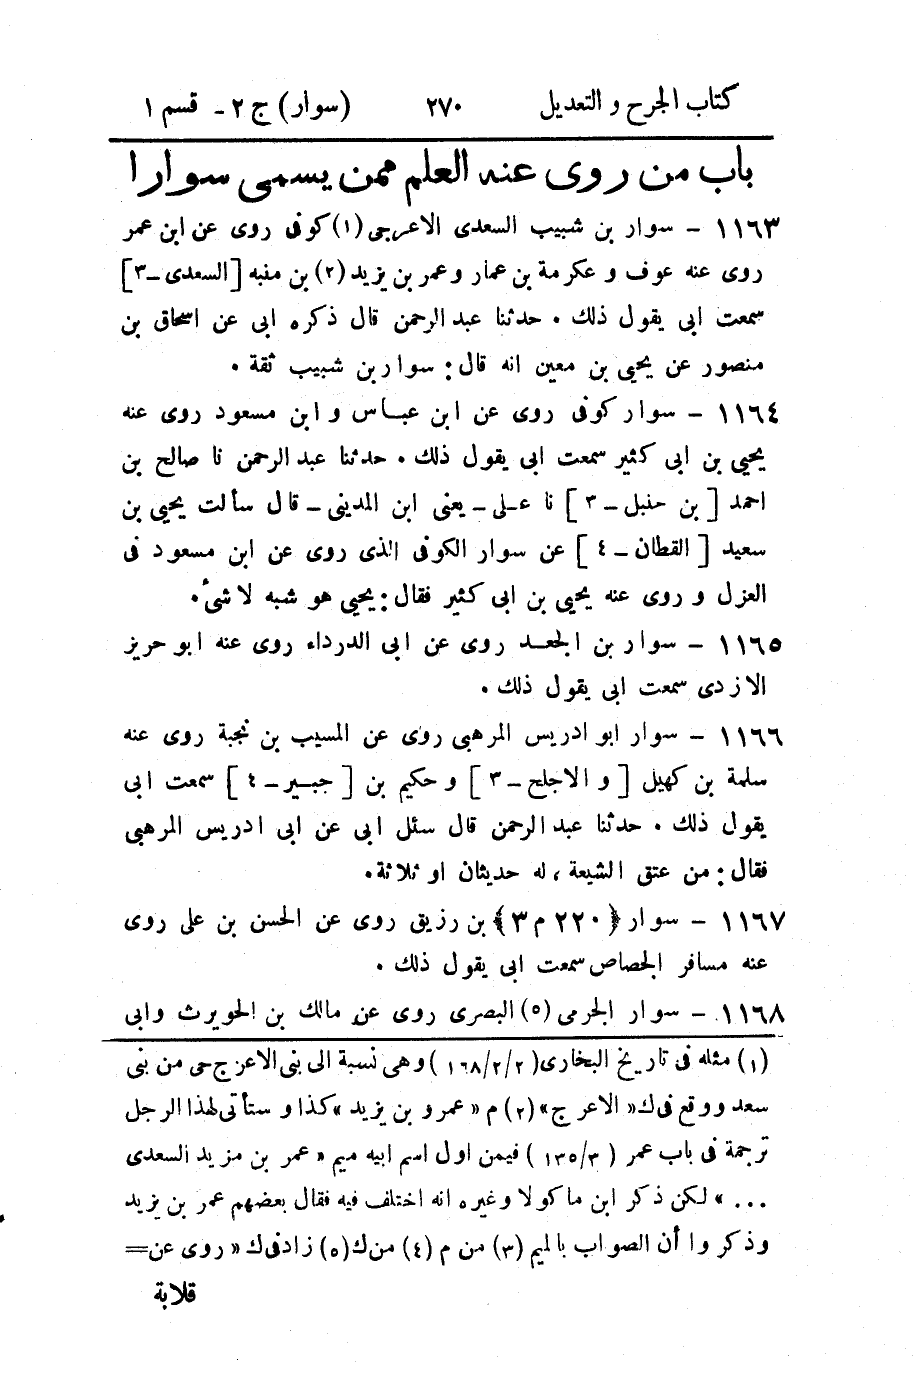 كتاب الجرح و التعديل ٢٧٠ (سوار) ج ٢ - قسم ١
باب من روى عنه العلم ممن يسمى سوارا
١١٦٣ - سوار بن شبيب السعدى الاعرجى (١) كوفى روى عن ابن عمر
روى عنه عوف و عكرمة بن عمار وعمر بن يزيد (٢) بن منبه [السعدى - ٣]
سمعت ابى يقول ذلك . حدثنا عبد الرحمن قال ذكره ابى عن اسحاق بن
منصور عن يحيى بن معين انه قال : سوار بن شبيب ثقة .
١١٦٤ - سوار كوفى روى عن ابن عباس و ابن مسعود روى عنه
يحيى بن ابى كثير سمعت ابى يقول ذلك . حدثنا عبد الرحمن نا صالح بن
احمد [ بن حنبل - ٣ ] نا على - يعنى ابن المدينى - قال سألت يحيى بن
سعيد [ القطان - ٤ ] عن سوار الكوفى الذى روى عن ابن مسعود فى
العزل و روى عنه يحيى بن ابى كثير فقال : يحيى هو شبه لا شئ .
١١٦٥ - سوار بن الجعد روى عن ابى الدرداء روى عنه ابو حريز
الازدى سمعت ابى يقول ذلك .
١١٦٦ - سوار ابو ادريس المرهبى روى عن المسيب بن نجبة روى عنه
سلمة بن كهيل [ و الاجلح - ٣ ] و حكيم بن [ جبير - ٤ ] سمعت ابى
يقول ذلك . حدثنا عبد الرحمن قال سئل ابى عن ابى ادريس المرهبى
فقال : من عتق الشيعة ، له حديثان او ثلاثة .
١١٦٧ - سوار ﴿٢٢٠ م ٣﴾ بن رزيق روى عن الحسن بن على روى
عنه مسافر الجصاص سمعت ابى يقول ذلك .
١١٦٨ - سوار الجرمى (٥) البصرى روى عن مالك بن الحويرث وابى
(١) مثله فى تاريخ البخارى (٢/٢/١٦٨) وهى نسبة الى بنى الاعرج حى من بنى
سعد ووقع فى ك « الاعرج » (٢) م « عمرو بن يزيد » كذا و ستأتى لهذا الرجل
ترجمة فى باب عمر ( ٣/١٣٥ ) فيمن اول اسم ابيه ميم « عمر بن مزيد السعدى
... » لكن ذكر ابن ماكولا وغيره انه اختلف فيه فقال بعضهم عمر بن يزيد
وذكروا أن الصواب بالميم (٣) من م (٤) من ك (٥) زاد فى ك « روى عن =
قلابة